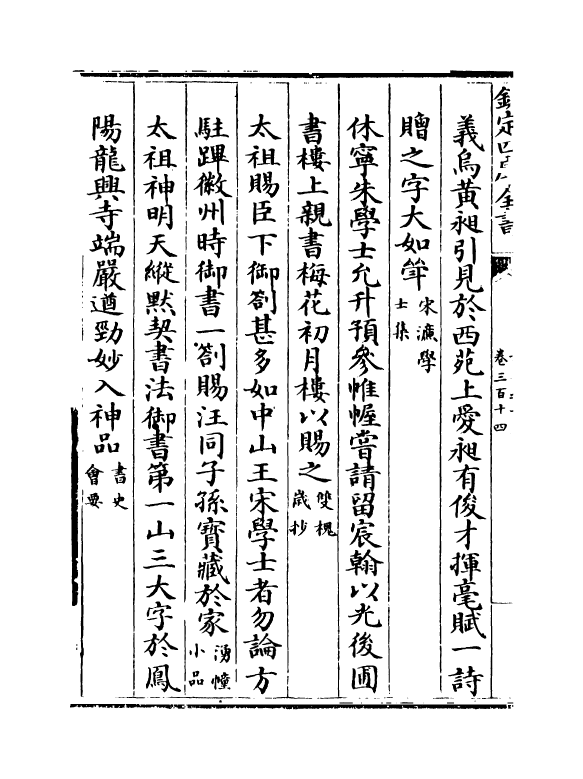 欽定四庫全書
卷三百十四
義烏黃昶引見於西苑上愛昶有俊才揮毫賦一詩
贈之字大如斝宋濂學士集
休寧朱學士允升預參帷幄嘗請留宸翰以光後圃
書樓上親書梅花初月樓以賜之雙槐歲抄
太祖賜臣下御劄甚多如中山王宋學士者勿論方
駐蹕徽州時御書一劄賜汪同子孫寶藏於家湧幢小品
太祖神明天縱默契書法御書第一山三大字於鳳
陽龍興寺端嚴遒勁妙入神品書史會要